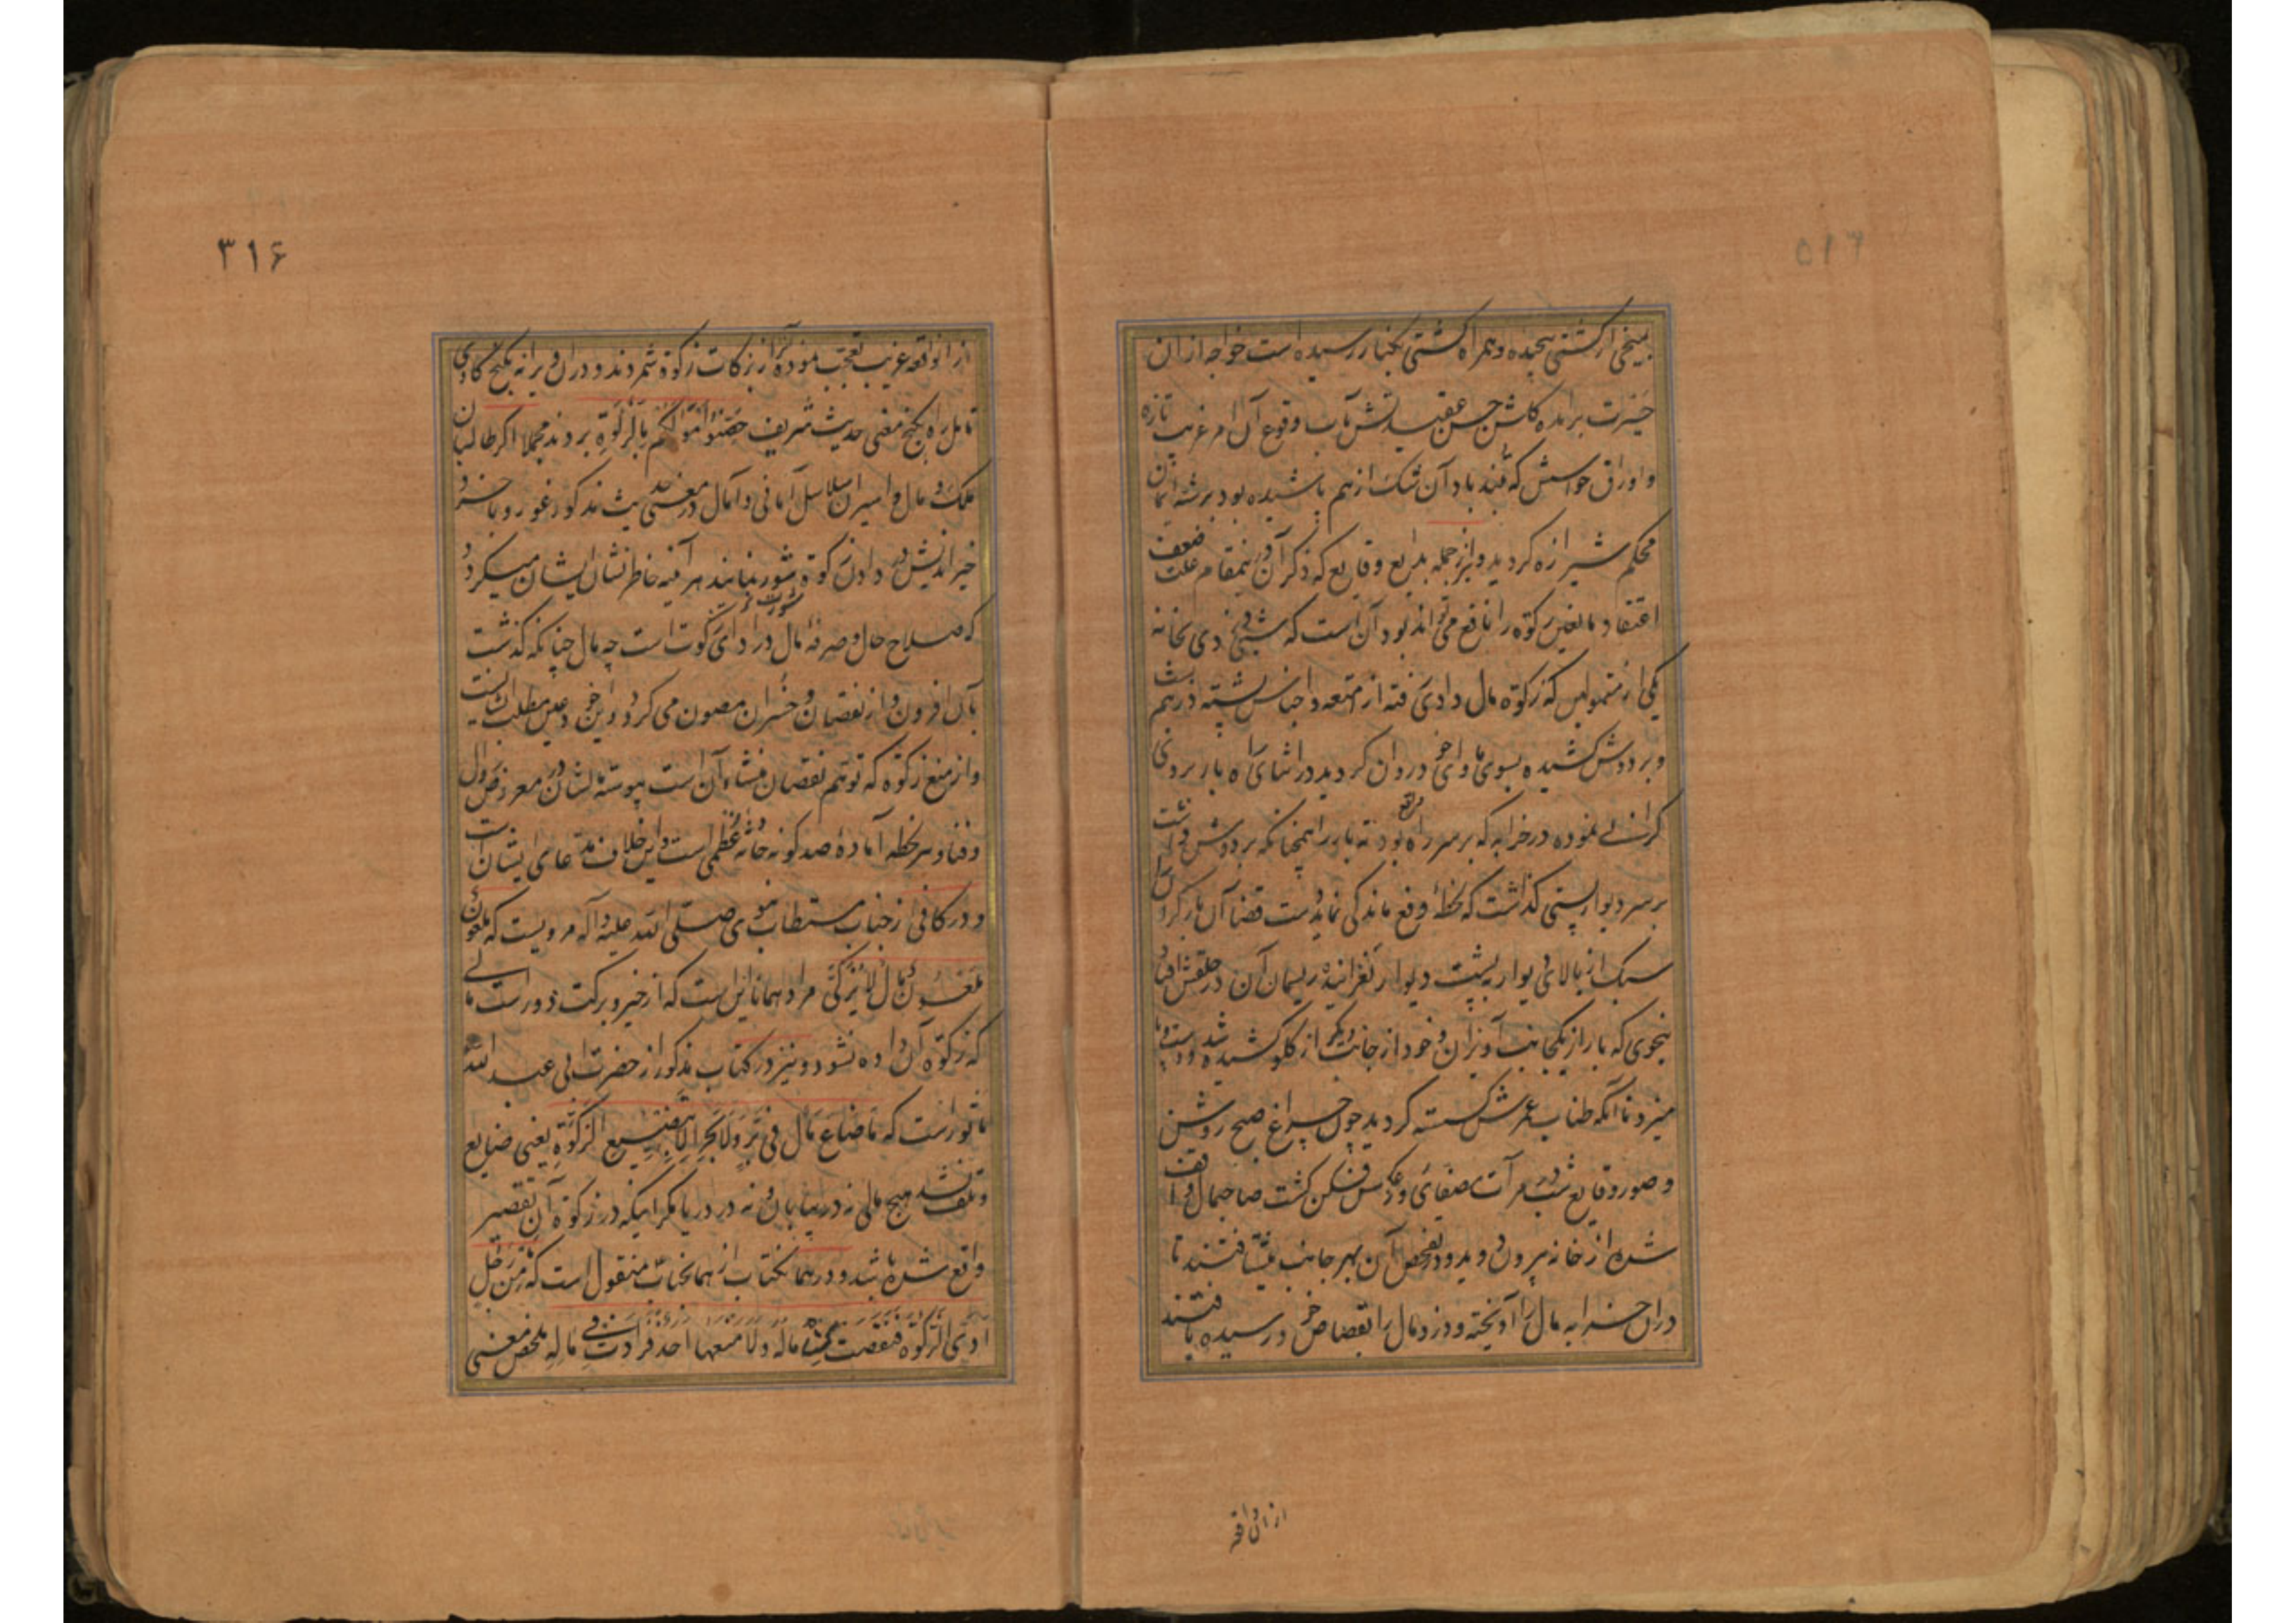 بمیخی از کشتی پیچیده و همراه کشتی بکنار رسیده است خواجه از آن
حیرت برانده کلشن حسن عقیدتش بآب وقوع آن امر غریب تازه
و اوراق حواسش که بتند باد آن شک از هم پاشیده بود برشته ایمان
محکم شیرازه کردید و نیز از جمله بدایع وقایع که ذکر آن درینمقام علت ضعف
اعتقاد مانعین زکوة را نافع می تواند بود آن است که شبی دزدی بخانه
یکی از متمولین که زکوة مال دادی رفته از امتعه و اجناس پشته درهم بست
و بر دوش کشیده بسوی ماوای خود روان کردید در اثنای راه بار بر وی
کرانی نموده در خرابه که بر سر راه واقع بود ته بار را همچنانکه بر دوش داشت
بر سر دیوار پستی کذاشت که لحظهٔ رفع ماندکی نماید دست قضا آن بار کران را
سبک از بالای دیوار به پشت دیوار لغزانیده ریسمان آن در حلقش افتاد
بنحوی که بار از یکجانب آویزان و خود از جانب دیکر از کلو کشیده شد و دست و پا
میزد تا آنکه طناب عمرش کسسته کردید چون چراغ صبح روشن
و صور وقایع شب در مرآت صفای روز عکس فکن کشت صاحبمال واقف
شده از خانه بیرون دوید و در تفحص آن بهر جانب میشتافتند تا
در آن خرابه مال را آویخته و دزد مال را بقصاص خود رسیده یافتند
از ان واقعه
۳۱۶
از آن واقعه غریب تعجب نموده آنرا از برکات زکوة شمردند و در آن ویرانه بکنج کاوی
تامل راه بکنج معنی حدیث شریف حَصِّنُوا أَمْوَالَكُمْ بِالزَّكٰوةِ بردند مجملا اکر طالبان
ملک و مال و اسیران سلاسل امانی و آمال در معنی حدیث مذکور غور و با خرد
خیر اندیش در دادن زکوة مشورت نمایند هر آینه خاطر نشان ایشان میکردد
که صلاح حال و صرفهٔ مال در ادای زکوت است چه مال چنانکه کذشت
بآن افزون و از نقصان و خسران مصون می کردد و این خود عین مطلب ایشانست
و از منع زکوة که توهم نقصان منشاء آن است پیوسته ایشان در معرض زوال
و فنا و هر لحظه آمادهٔ صد کونه حادثهٔ عظمی است و این خلاف مدعای ایشان است
و در کافی از جناب مستطاب نبوی صلی الله علیه و آله مرویست که مَلْعُونٌ
مَلْعُونٌ مَالٌ لَا يُزَكَّى مراد همانا این است که از خیر و برکت دور است مالی
که زکوة آن داده نشود و نیز در کتاب مذکور از حضرت ابی عبد الله
ماثور است که مَا ضَاعَ مَالٌ فِي بَرٍّ وَلَا بَحْرٍ إِلَّا بِتَضْيِيعِ الزَّكٰوةِ یعنی ضایع
و تلف نشد هیچ مالی نه در بیابان و نه در دریا مکر اینکه در زکوة آن تقصیر
واقع شده باشد و در همانکتاب از همانجناب منقول است که مَا مِنْ رَجُلٍ
ادی الزکوة فنقصت من ماله ولا منعها احد فزادت فی ماله ملخص معنی